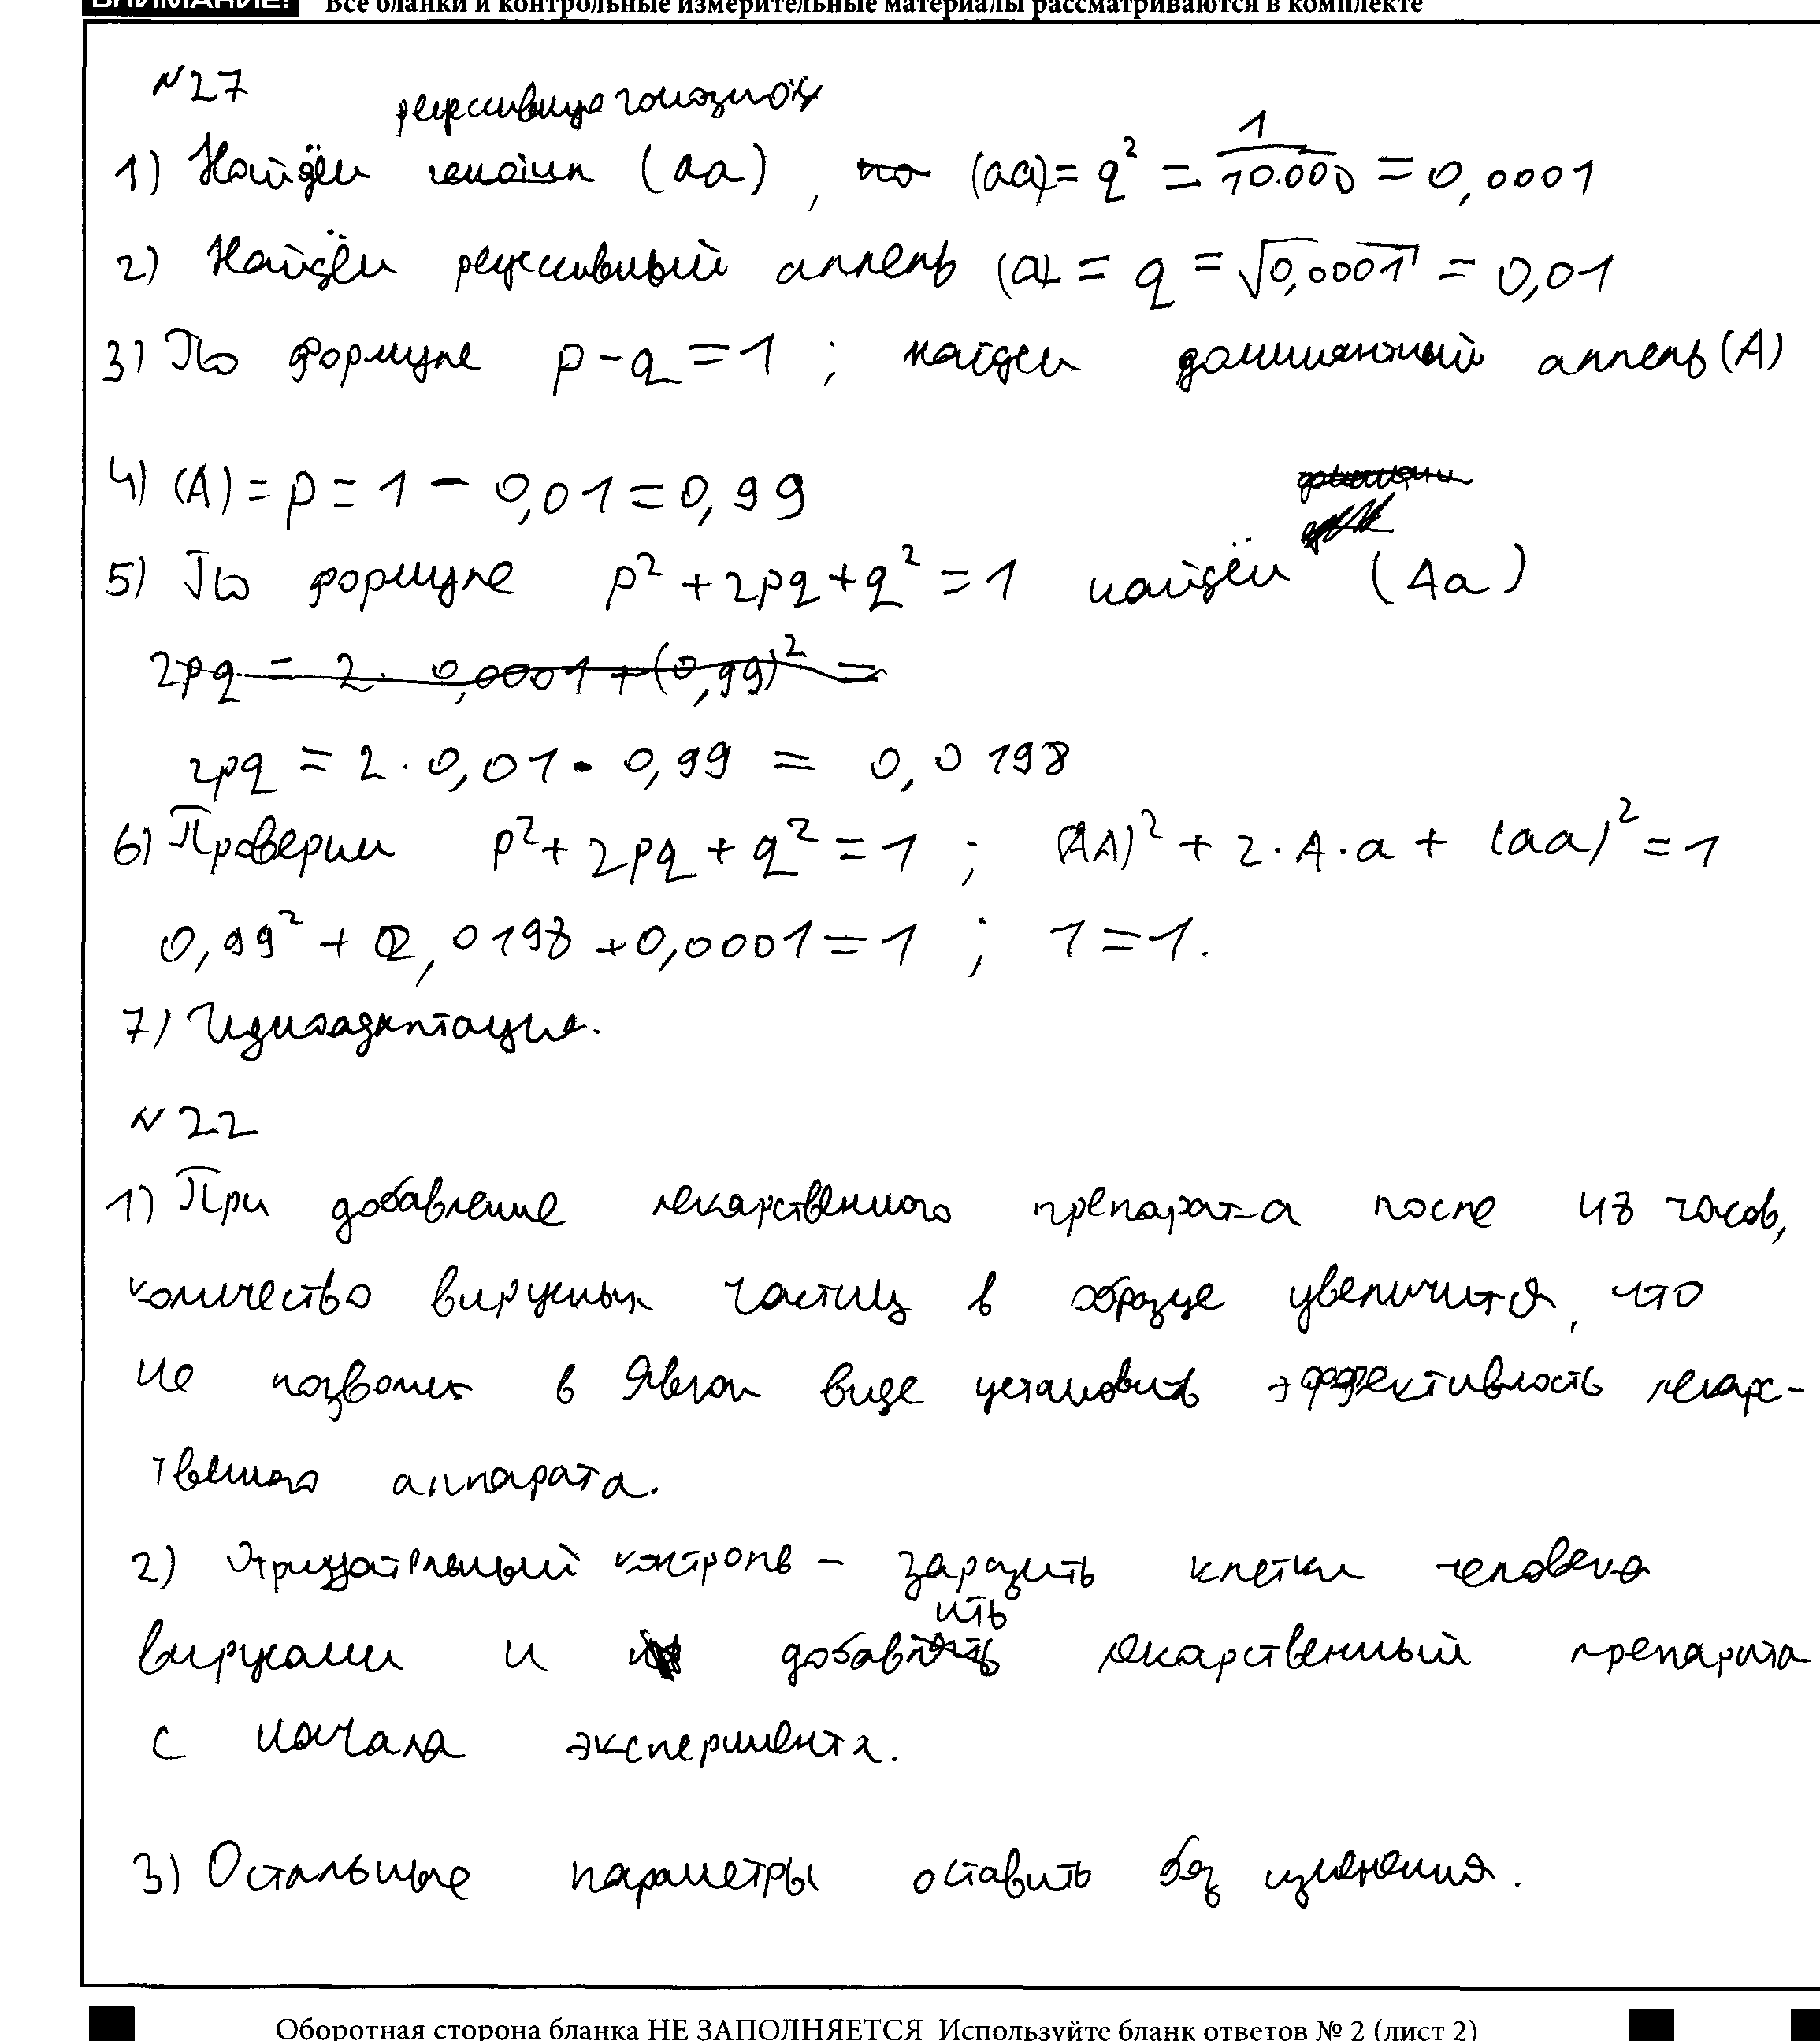 ВНИМАНИЕ! Все бланки и контрольные измерительные материалы рассматриваются в комплекте
№27
рецессивную гомозиготу
1) Найдём генотип (aa), то (aa) = q² = 1/10.000 = 0,0001
2) Найдём рецессивный аллель (a) = q = √0,0001 = 0,01
3) По формуле p - q = 1 ; найдем доминантный аллель (A)
4) (A) = p = 1 - 0,01 = 0,99
5) По формуле p² + 2pq + q² = 1 найдём (Aa)
2pq = 2 · 0,0001 + (0,99)² =
2pq = 2 · 0,01 · 0,99 = 0,0198
6) Проверим p² + 2pq + q² = 1 ; (AA)² + 2·A·a + (aa)² = 1
0,99² + 0,0198 + 0,0001 = 1 ; 1 = 1.
7) Идиоадаптация.
№22
1) При добавление лекарственного препарата после 48 часов,
количество вирусных частиц в образце увеличится, что
не позволит в явном виде установить эффективность лекарс-
твенного аппарата.
2) Отрицательный контроль – заразить клетки человека
ить
вирусами и добавлять лекарственный препарата
с начала эксперимента.
3) Остальные параметры оставить без изменения.
Оборотная сторона бланка НЕ ЗАПОЛНЯЕТСЯ Используйте бланк ответов № 2 (лист 2)